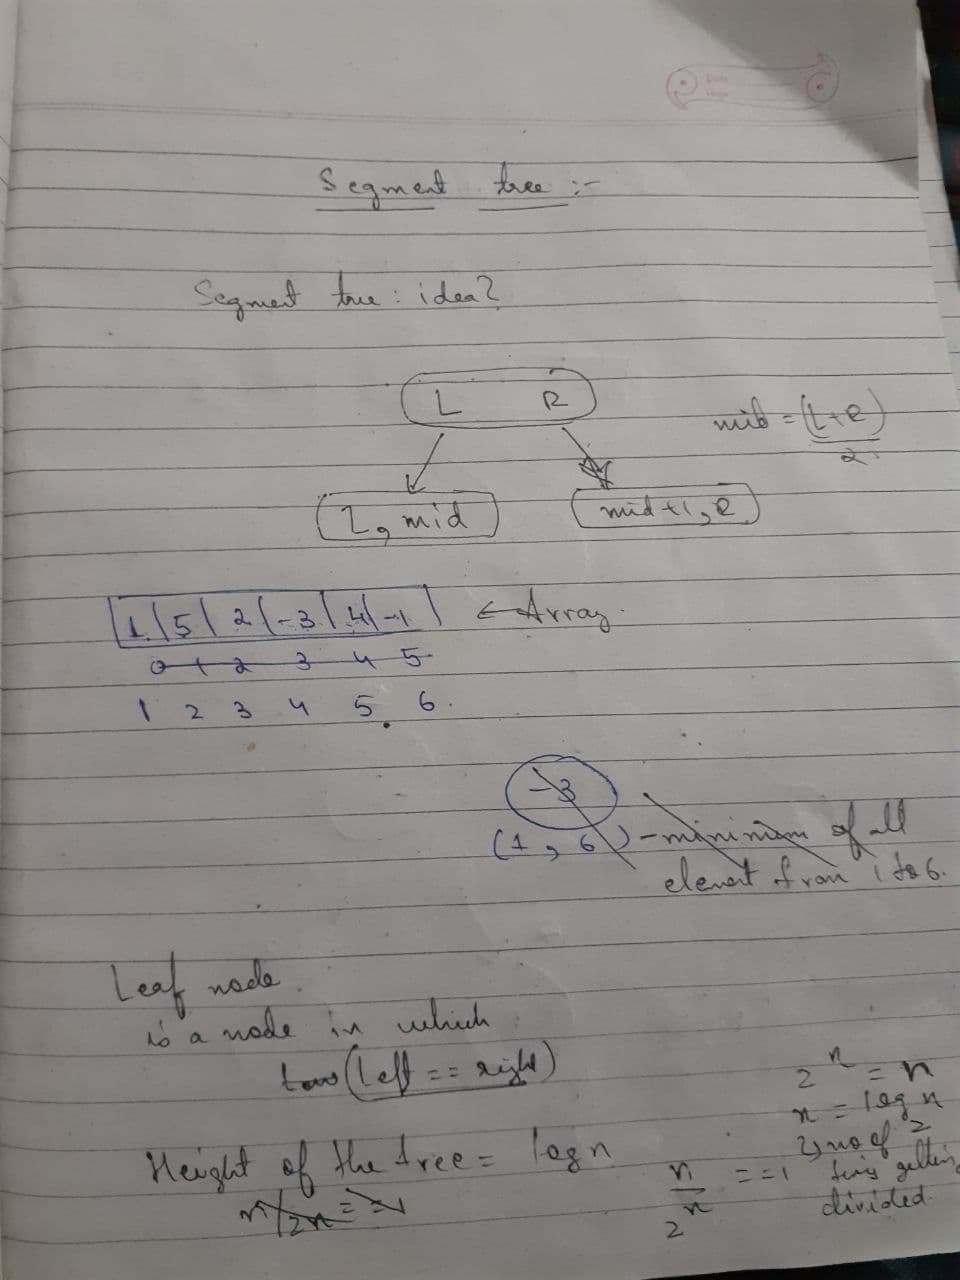 Segment tree :-
Segment tree : idea?
L R
mid = (L+R)
2
L, mid
mid+1, R
1 | 5 | 2 | -3 | 4 | -1
← Array.
0 1 2 3 4 5
1 2 3 4 5 6.
-3
(1, 6) - minimum of all
element from 1 to 6.
Leaf node
is a node in which
(left == right)
2^x = n
x = log n
2
↳ no of
Height of the tree = log n
n
2^x
== 1
getting
divided
n/2x == 1